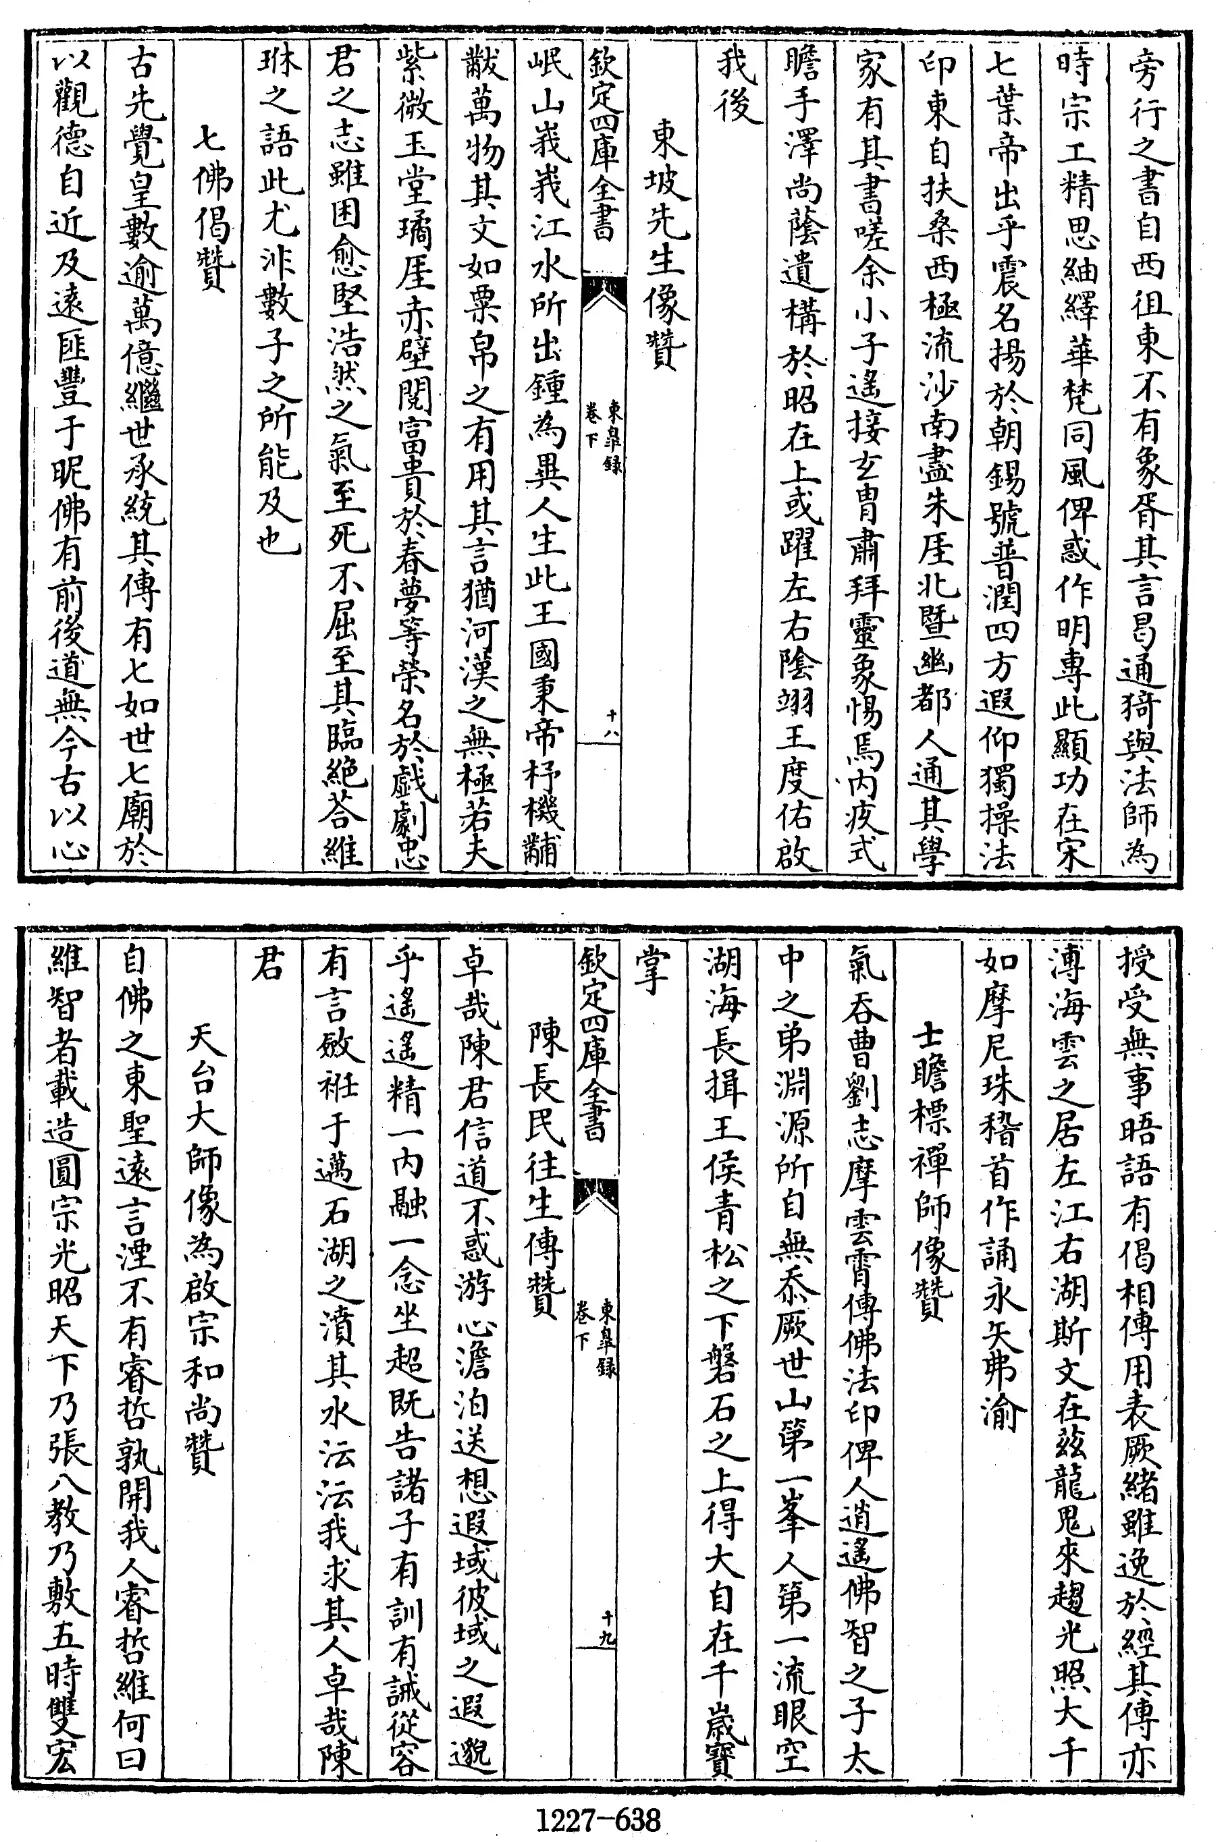 旁行之書自西徂東不有象胥其言曷通猗與法師為
時宗工精思紬繹華梵同風俾惑作明專此顯功在宋
七葉帝出乎震名揚於朝錫號普潤四方遐仰獨操法
印東自扶桑西極流沙南盡朱厓北曁幽都人通其學
家有其書嗟余小子遙接玄胄肅拜靈象惕焉內疚式
瞻手澤尚蔭遺構於昭在上或躍左右陰翊王度佑啟
我後
東坡先生像贊
欽定四庫全書
東臯録
卷下
十八
岷山峩峩江水所出鍾為異人生此王國秉帝杼機黼
黻萬物其文如粟帛之有用其言猶河漢之無極若夫
紫微玉堂璚厓赤壁閱富貴於春夢等榮名於戯劇忠
君之志雖困愈堅浩然之氣至死不屈至其臨絶荅維
琳之語此尤非數子之所能及也
七佛偈贊
古先覺皇數逾萬億繼世承統其傳有七如世七廟於
以觀德自近及遠匪豐于昵佛有前後道無今古以心
授受無事晤語有偈相傳用表厥緒雖逸於經其傳亦
溥海雲之居左江右湖斯文在茲龍鬼來趨光照大千
如摩尼珠稽首作誦永矢弗渝
士瞻標禪師像贊
氣吞曹劉志摩雲霄傳佛法印俾人逍遙佛智之子太
中之弟淵源所自無忝厥世山第一峯人第一流眼空
湖海長揖王侯青松之下磐石之上得大自在千嵗寳
掌
欽定四庫全書
東臯録
卷下
十九
陳長民往生傳贊
卓哉陳君信道不惑游心澹泊送想遐域彼域之遐邈
乎遙遙精一內融一念坐超既告諸子有訓有誡從容
有言斂袵于邁石湖之濆其水沄沄我求其人卓哉陳
君
天台大師像為啟宗和尚贊
自佛之東聖遠言湮不有睿哲孰開我人睿哲維何曰
維智者載造圓宗光昭天下乃張八教乃敷五時雙宏
1227-638